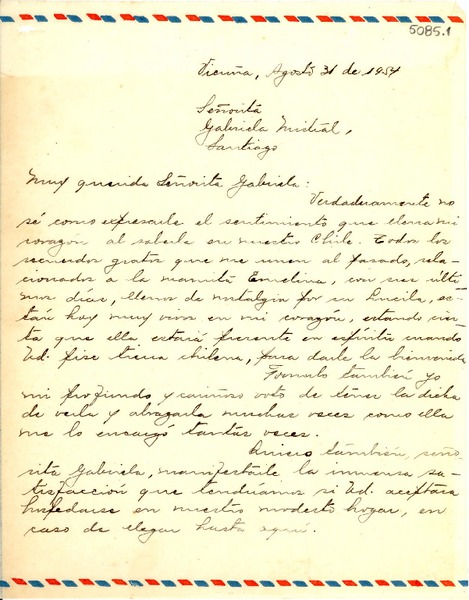 5085.1
Vicuña, Agosto 31 de 1954
Señorita
Gabriela Mistral,
Santiago
Muy querida Señorita Gabriela:
Verdaderamente no
sé como expresarle el sentimiento que llena mi
corazón al saberla en nuestro Chile. Todos los
recuerdos gratos que me unen al pasado, rela-
cionados a la mamita Emelina, con sus últi-
mos días, llenos de nostalgia por su Lucila, es-
tán hoy muy vivos en mi corazón, estando cier-
ta que ella estará presente en espíritu cuando
Ud. pise tierra chilena, para darle la bienvenida
Formulo también yo
mi profundo y cariñoso voto de tener la dicha
de verla y abrazarla muchas veces como ella
me lo encargó tantas veces.
Quiero también, seño-
rita Gabriela, manifestarle la inmensa sa-
tisfacción que tendríamos si Ud. aceptara
hospedarse en nuestro modesto hogar, en
caso de llegar hasta aquí.